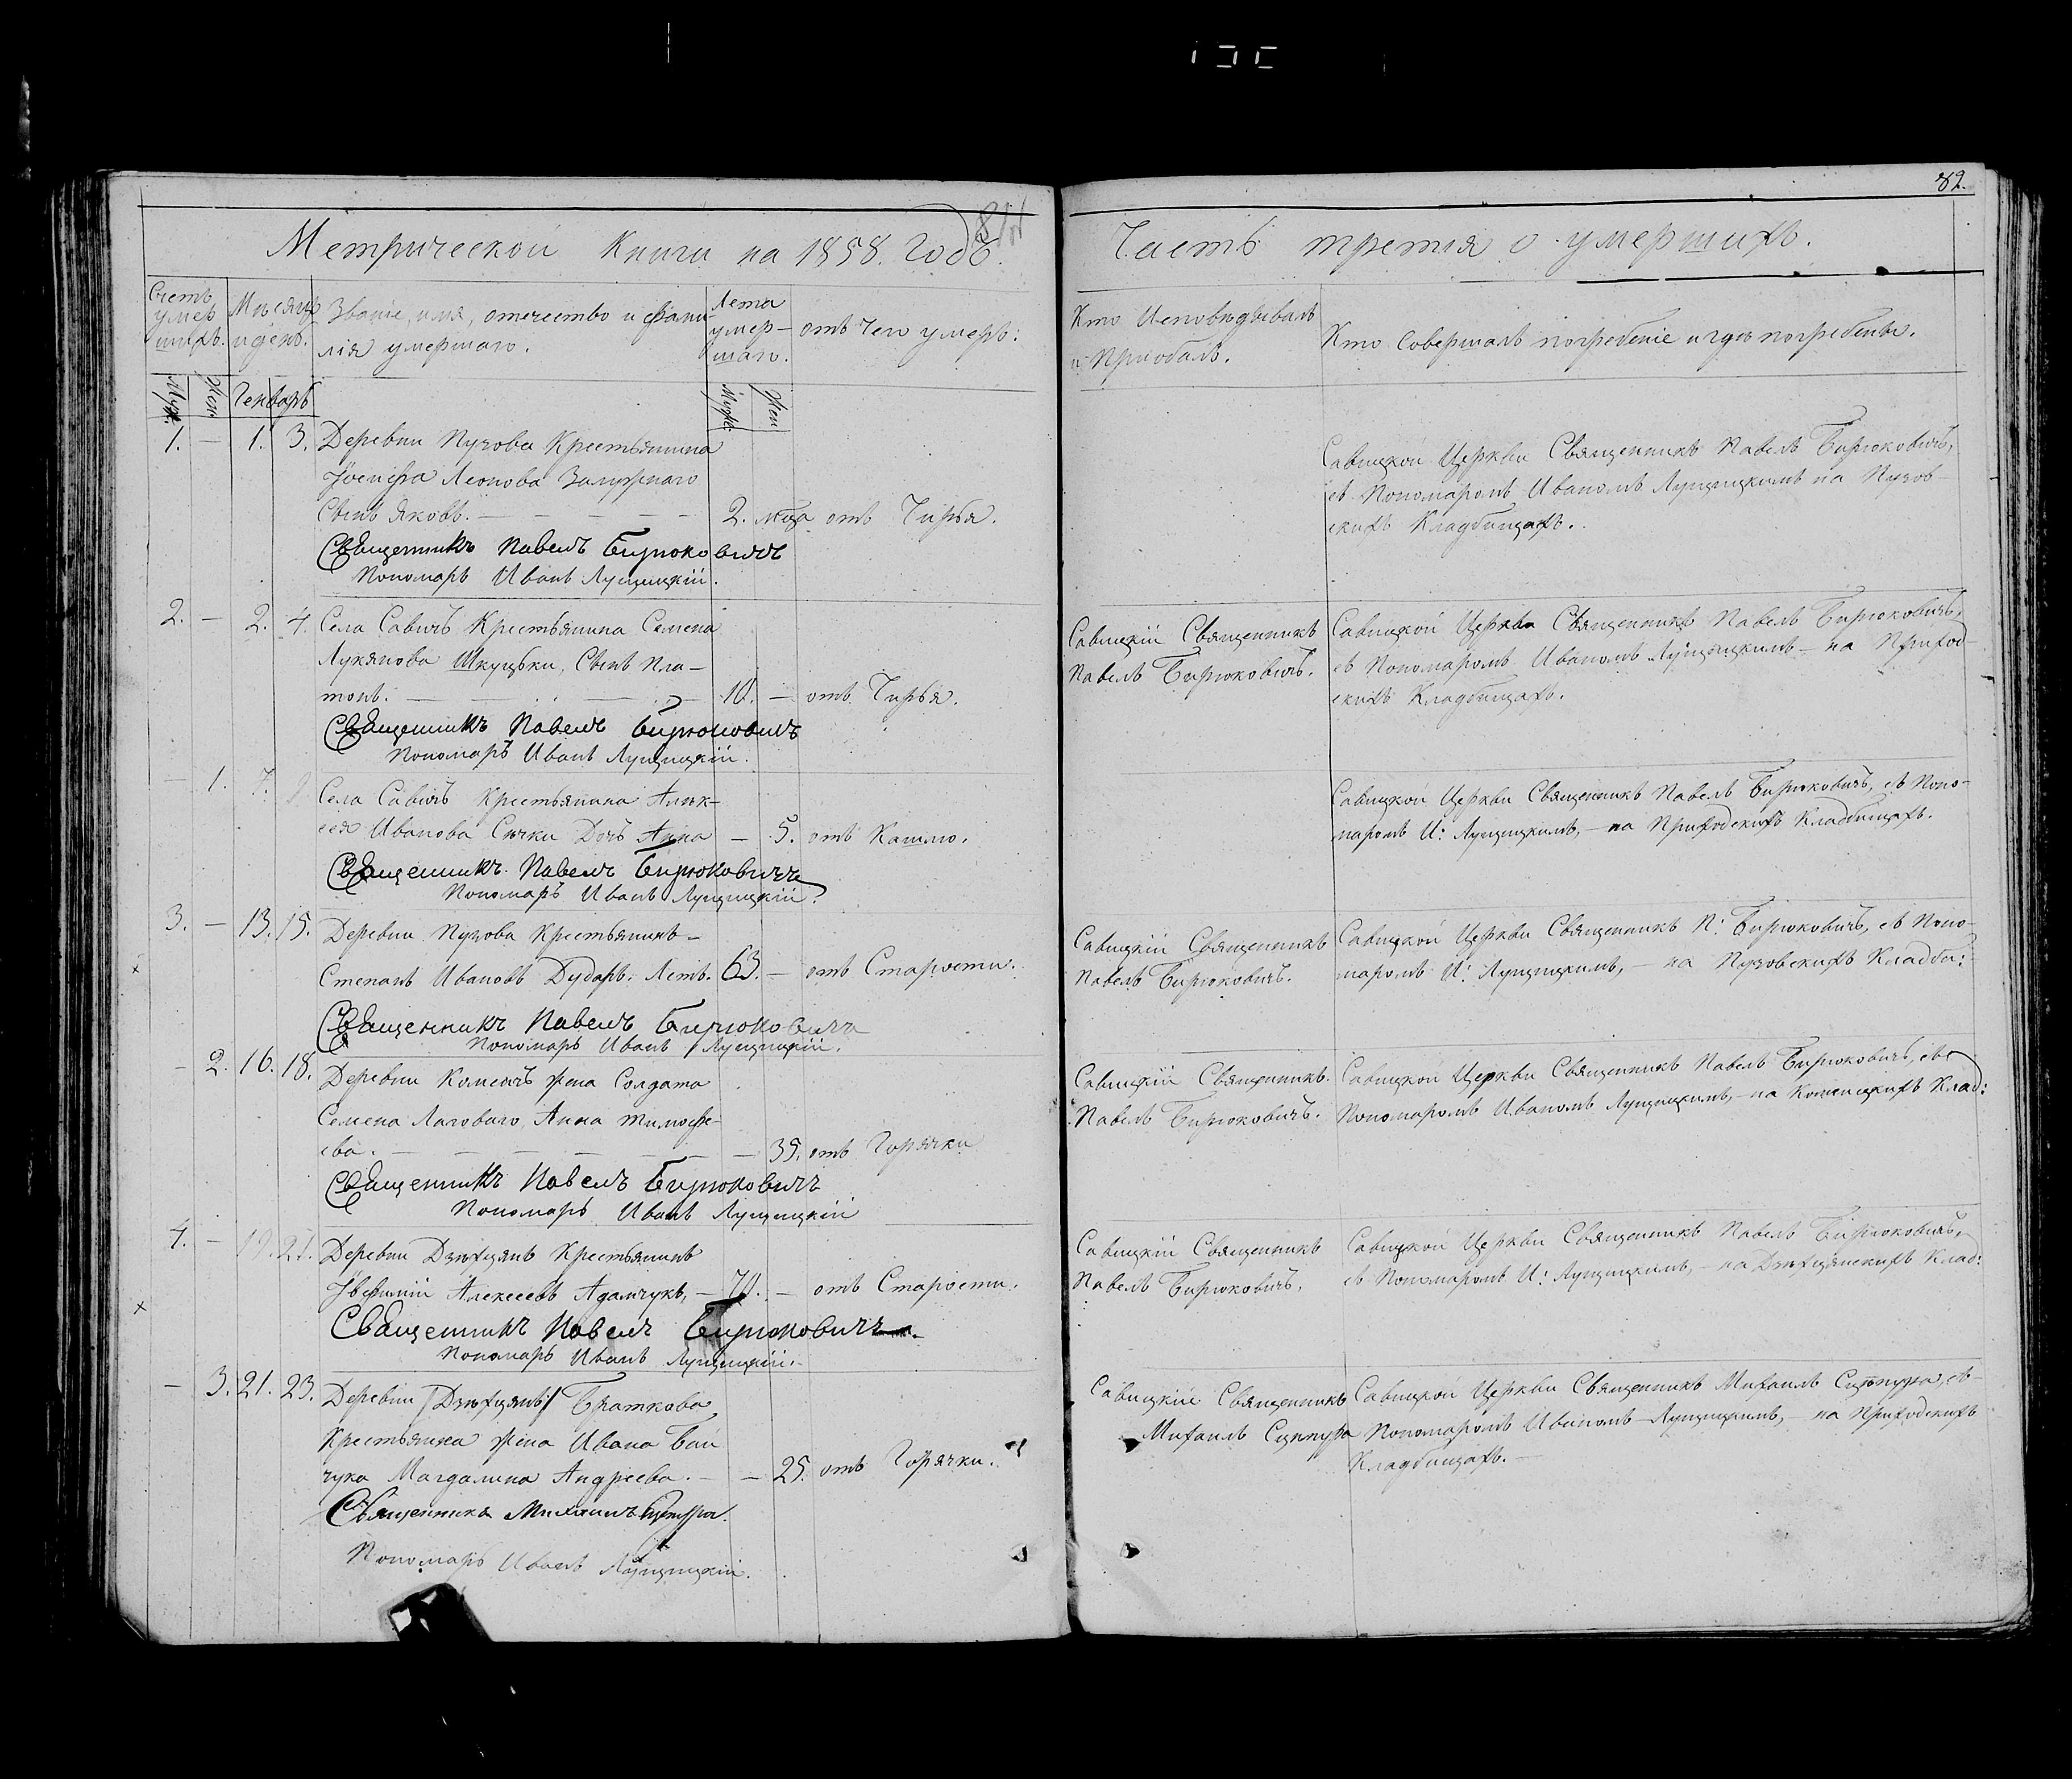 82.
Метрической Книги на 1858. Годъ.
Часть третія о умершихъ.
Счетъ умер шихъ.
Мѣсяцъ и день.
Званіе, имя, отечество и фами-
лія умершаго.
Лета умер-
шаго.
отъ Чего умеръ:
Кто Исповѣдывалъ
и Приобщалъ.
Кто Совершалъ погребеніе и гдѣ погребены.
Муж.
Жен.
Генварь
Муж:
Жен
1. — 1. 3. Деревни Пузова Крестьянина
Іосифа Леонова Залужнаго
Сынъ Яковъ. — 2. мца отъ Чирья.
Священникъ Павелъ Бирюковичъ
Пономарь Иванъ Лущицкій.
Савицкой Церкви Священникъ Павелъ Бирюковичъ,
съ Пономаромъ Иваномъ Лущицкимъ на Пузов-
скихъ Кладбищахъ.
2. — 2. 4. Села Савичъ Крестьянина Семена
Лукянова Шкуцьки, Сынъ Пла-
тонъ. — 10. — отъ Чирья.
Священникъ Павелъ Бирюковичъ
Пономарь Иванъ Лущицкій.
Савицкій Священникъ
Павелъ Бирюковичъ.
Савицкой Церкви Священникъ Павелъ Бирюковичъ,
съ Пономаромъ Иваномъ Лущицкимъ — на Приход-
скихъ Кладбищахъ.
— 1. 7. Села Савичъ Крестьянина Алек-
сея Иванова Сички Дочь Анна — 5. отъ Кашлю.
Священникъ Павелъ Бирюковичъ
Пономарь Иванъ Лущицкій.
Савицкой Церкви Священникъ Павелъ Бирюковичъ, съ Поно-
маромъ И: Лущицкимъ, — на Приходскихъ Кладбищахъ.
3. — 13. 15. Деревни Пузова Крестьянинъ —
Степанъ Ивановъ Дударь. Летъ. 63. — отъ Старости.
Священникъ Павелъ Бирюковичъ
Пономарь Иванъ Лущицкій.
Савицкій Священникъ
Павелъ Бирюковичъ.
Савицкой Церкви Священникъ П: Бирюковичъ, съ Поно-
маромъ И: Лущицкимъ, — на Пузовскихъ Кладби:
— 2. 16. 18. Деревни Комсичъ жена Солдата
Семена Лаговаго, Анна Тимофе-
ева. — 35. отъ Горячки
Священникъ Павелъ Бирюковичъ
Пономарь Иванъ Лущицкій
Савицкій Священникъ
Павелъ Бирюковичъ.
Савицкой Церкви Священникъ Павелъ Бирюковичъ, съ
Пономаромъ Иваномъ Лущицкимъ, — на Комсицкихъ Клад:
4. — 19. 21. Деревни Дзѣхцянъ Крестьянинъ
Алексеевъ Адамчукъ, — 70. — отъ Старости.
Священникъ Павелъ Бирюковичъ.
Пономарь Иванъ Лущицкій.
Савицкій Священникъ
Павелъ Бирюковичъ.
Савицкой Церкви Священникъ Павелъ Бирюковичъ,
съ Пономаромъ И: Лущицкимъ, — на Дзѣхцянскихъ Клад:
— 3. 21. 23. Деревни /Дзѣхцянъ/ Браткова
Крестьянка жена Ивана Бай
чука Магдалина Андреева. — — 25. отъ Горячки.
Священникъ Михаилъ Сцепура.
Пономарь Иванъ Лущицкій.
Савицкій Священникъ
Михаилъ Сцепура
Савицкой Церкви Священникъ Михаилъ Сцепура, съ
Пономаромъ Иваномъ Лущицкимъ, — на Приходскихъ
Кладбищахъ. —